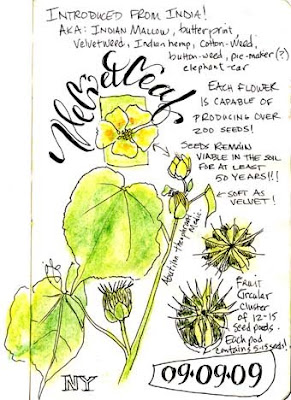 INTRODUCED FROM INDIA!
AKA: INDIAN MALLOW, butterprint
Velvetweed, Indian hemp, Cotton-Weed,
button-weed, pie-maker(?)
elephant-ear
VelvetLeaf
EACH FLOWER
IS CAPABLE OF
PRODUCING OVER
200 SEEDS!
SEEDS REMAIN
VIABLE IN THE SOIL
FOR AT LEAST
50 YEARS!!!
SOFT AS
VELVET!
Abutilon theophrasti
Medic.
Fruit
Circular
Cluster
of 12-15
Seed pods.
Each pod
contains 5-15 seeds!
NY
09.09.09